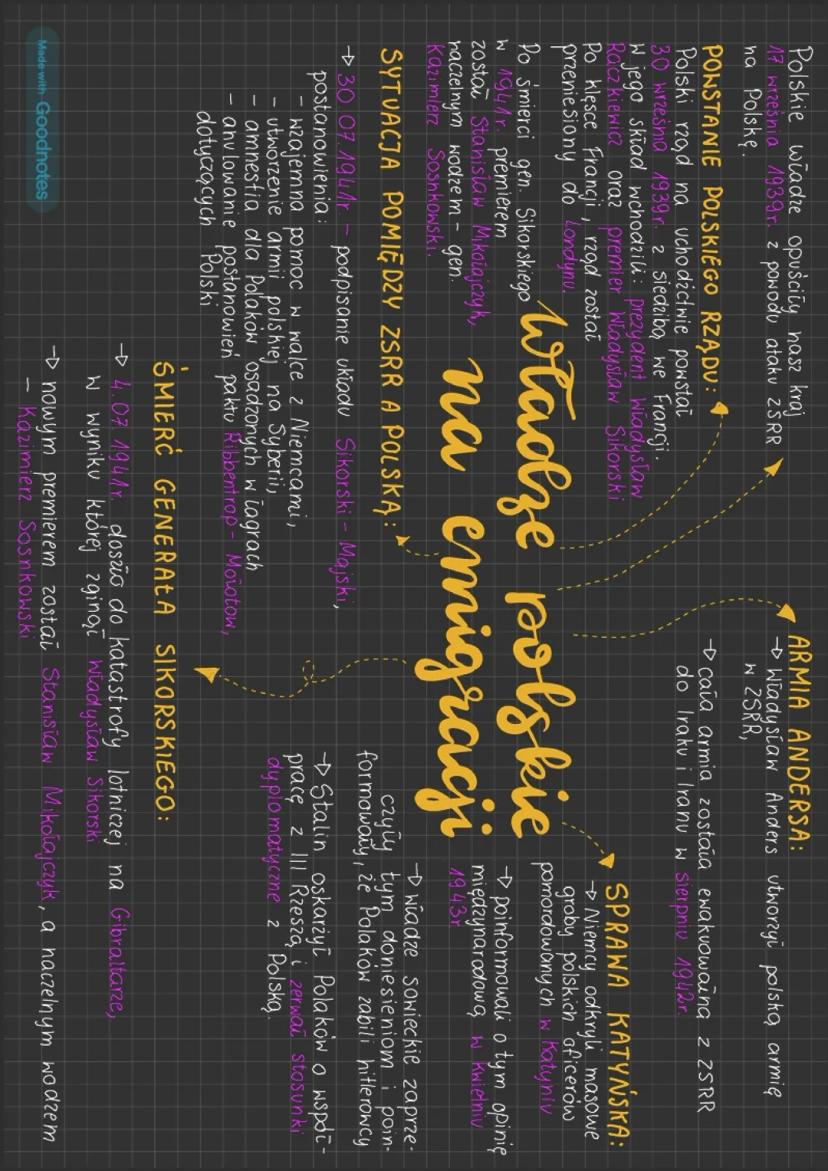 Polskie władze opuściły nasz kraj
17 września 1939r. z powodu ataku ZSRR
na Polskę.
POWSTANIE POLSKIEGO RZĄDU:
Polski rząd na uchodźctwie powstał
30 września 1939r. z siedzibą we Francji.
W jego skład wchodzili: prezydent Władysław
Raczkiewicz oraz premier Władysław Sikorski
Po klęsce Francji, rząd został
przeniesiony do Londynu.
Po śmierci gen. Sikorskiego
w 1941r. premierem
został Stanisław Mikołajczyk,
naczelnym wodzem - gen.
Kazimierz Sosnkowski.
Władze polskie
na emigracji
ARMIA ANDERSA:
→ Władysław Anders utworzył polską armię
w ZSRR,
→ cała armia została ewakuowałna z ZSRR
do Iraku i Iranu w sierpniu 1942r.
SPRAWA KATYŃSKA:
→ Niemcy odkryli masowe
groby polskich oficerów
pomordowanych w Katyniu
→ poinformowali o tym opinię
międzynarodową w kwietniu
1943r
→ władze sowieckie zaprze-
czyły tym doniesieniom i poin-
formowały, że Polaków zabili hitlerowcy
→ Stalin oskarżył Polaków o współ-
pracę z III Rzeszą i zerwał stosunki
dyplomatyczne z Polską
SYTUACJA POMIĘDZY ZSRR A POLSKĄ:
→ 30.07.1941r - podpisanie układu Sikorski - Majski,
postanowienia:
- wzajemna pomoc w walce z Niemcami,
- utworzenie armii polskiej na Syberii,
- amnestia dla Polaków osadzonych w łagrach
- anulowanie postanowień paktu Ribbentrop - Mołotow,
dotyczących Polski
ŚMIERĆ GENERAŁA SIKORSKIEGO:
→ 4.07.1941r. doszło do katastrofy lotniczej na Gibraltarze,
w wyniku której zginął Władysław Sikorski
→ nowym premierem został Stanisław Mikołajczyk, a naczelnym wodzem
- Kazimierz Sosnkowski
Made with Goodnotes